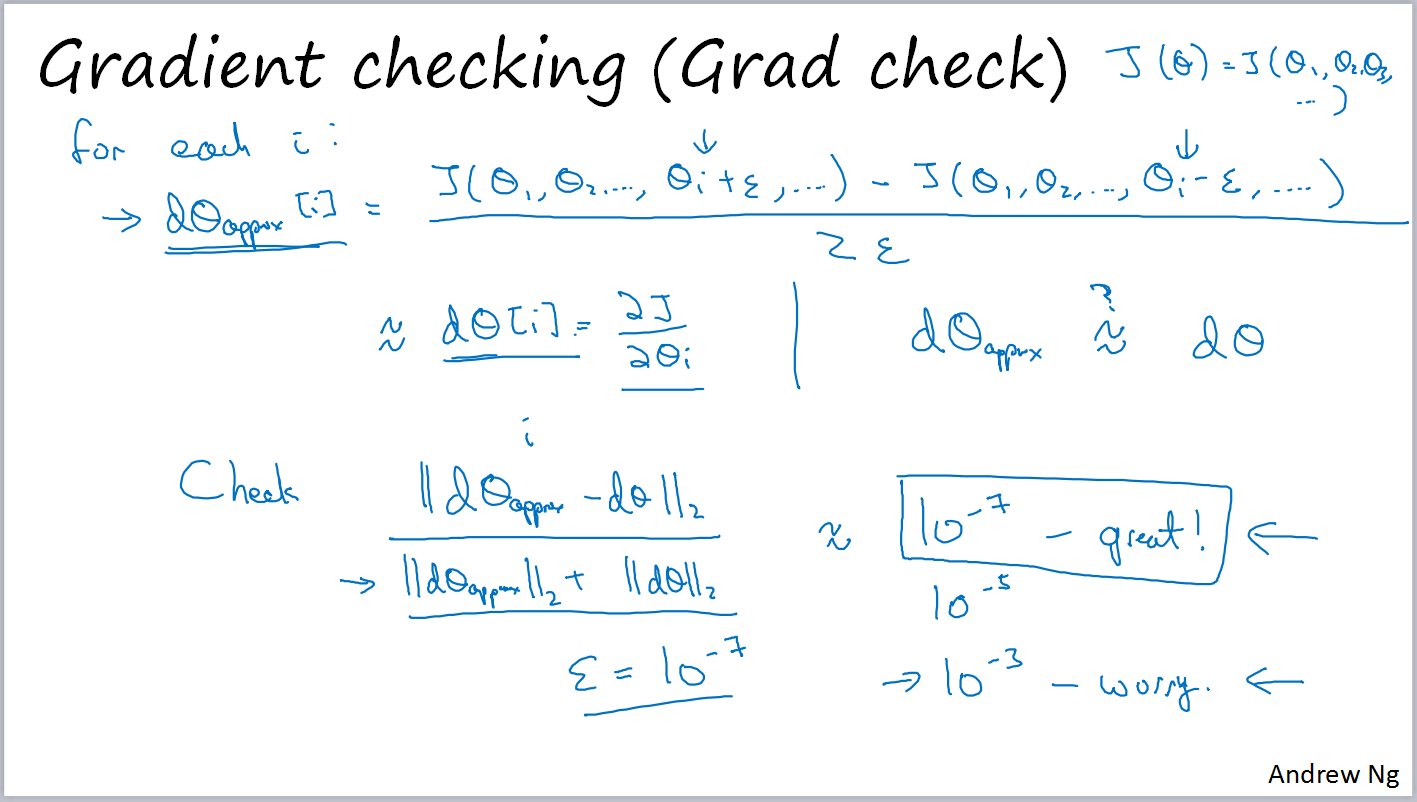 Gradient checking (Grad check)
J(θ) = J(θ₁, θ₂, θ₃, ...)
for each i:
→ dθapprox[i] = (J(θ₁, θ₂, ..., θᵢ+ε, ...) - J(θ₁, θ₂, ..., θᵢ-ε, ....)) / 2ε
≈ dθ[i] = ∂J/∂θᵢ | dθapprox ≈? dθ
i
Check ||dθapprox - dθ||₂ / (||dθapprox||₂ + ||dθ||₂) ≈ 10⁻⁷ - great! ←
10⁻⁵
ε = 10⁻⁷ → 10⁻³ - worry. ←
Andrew Ng